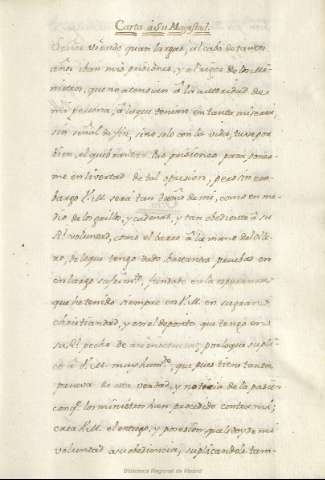 Carta á Su Magestad.
Señor viendo quan largas, al cabo de tantos
años iban mis prisiones, y el rigor de los Mi-
nistros, que no atendien á la autoridad de
mi persona, á la que tenian en tanta miseria
sin señal de fin, sino solo con la vida, tuve por
bien, el quebrantar las prisiones para poner
me en libertad de tal opresion, pero sin em-
bargo V.M. será tan dueño de mi, como en me-
dio de los grillos, y cadenas, y tan obediente á su
Rl. voluntad, como el barro á la mano del Olle-
ro, de lo que tengo dado bastantes pruebas en
tan largo sufrimto. fundado en la esperanza
que he tenido siempre en V.M. en su gran
christiandad, y en el deposito que tengo en
su Rl. pecho de mi inocencia; por lo que supli-
co á V.M. muy humde. que pues tiene tanta
prueva de esta verdad, y noticia de la pasion
con q. los ministros han procedido contra mi;
crea V.M. el entrego, y posesion, que le doy de mi
voluntad á su obediencia; suplicandole tam-
Biblioteca Regional de Madrid